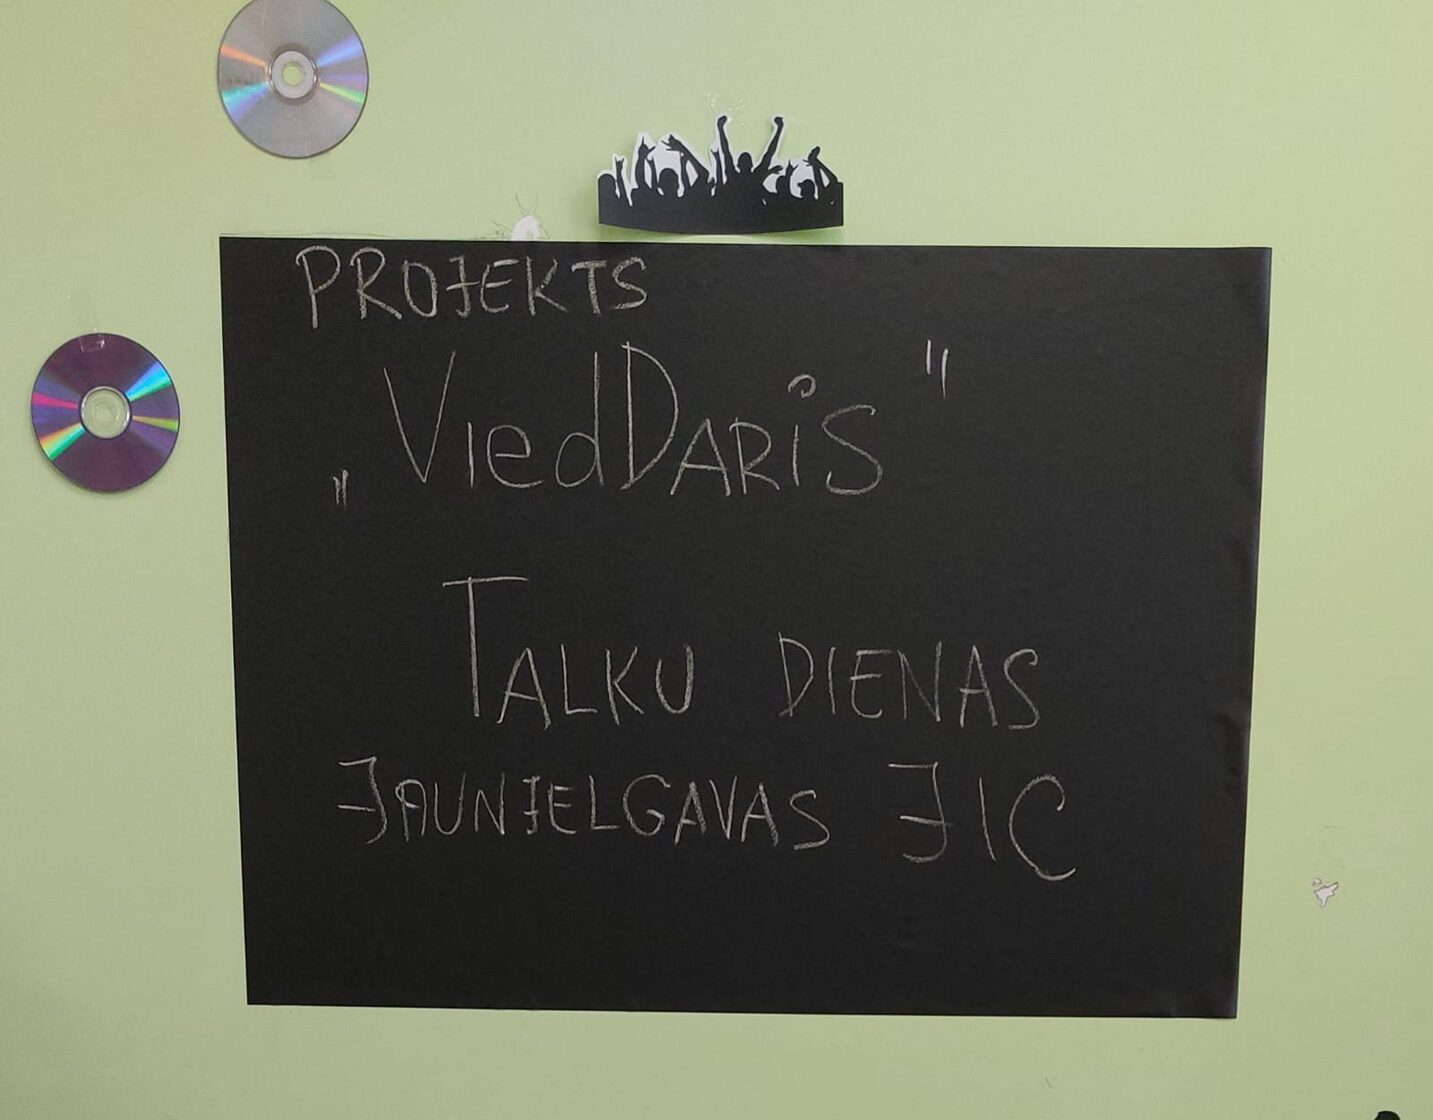 PROJEKTS
„ViedDARiS"
TALKU DIENAS
JAUNJELGAVAS JIC